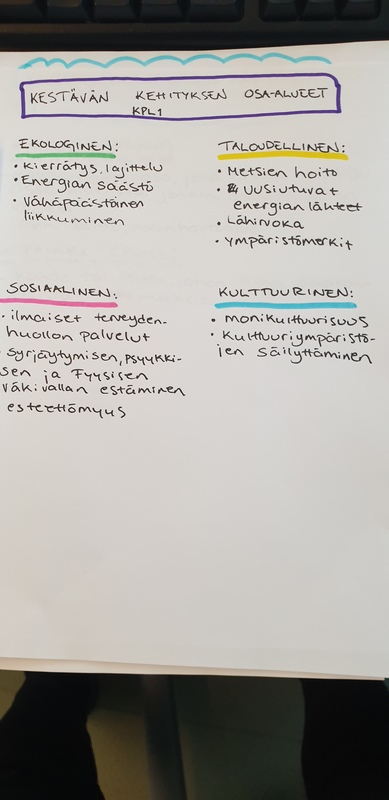 KESTÄVÄN KEHITYKSEN OSA-ALUEET
KPL1
EKOLOGINEN:
• Kierrätys, lajittelu
• Energian säästö
• Vähäpäästöinen
liikkuminen
TALOUDELLINEN:
• Metsien hoito
• Uusiutuvat
energian lähteet
• Lähiruoka
• Ympäristömerkit
SOSIAALINEN:
• ilmaiset terveyden-
huollon palvelut
syrjäytymisen, psyykki-
sen ja Fyysisen
väkivallan estäminen
esteettömyys
KULTTUURINEN:
• monikulttuurisuus
• Kulttuuriympäristö-
jen säilyttäminen